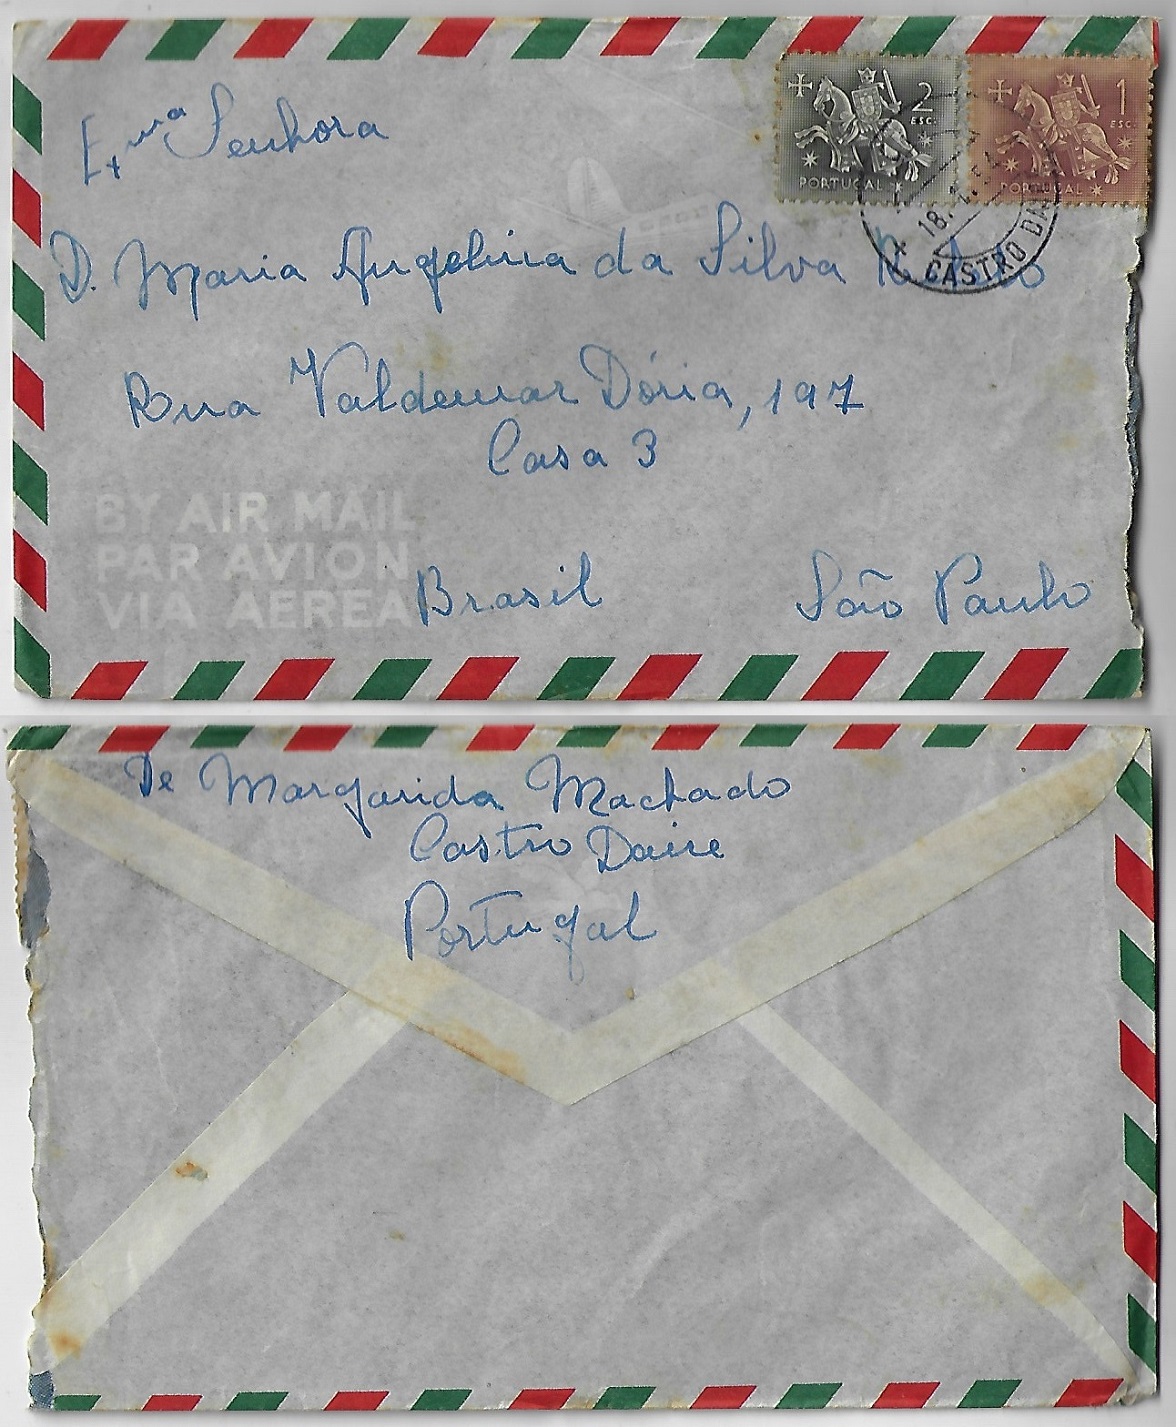 Exma Senhora
2
ESC.
PORTUGAL
1
ESC.
PORTUGAL
18.
CASTRO DA
D. Maria Angelina da Silva
Rua Valdemar Dória, 197
Casa 3
BY AIR MAIL
PAR AVION
VIA AEREA
Brasil São Paulo
De Margarida Machado
Castro Daire
Portugal